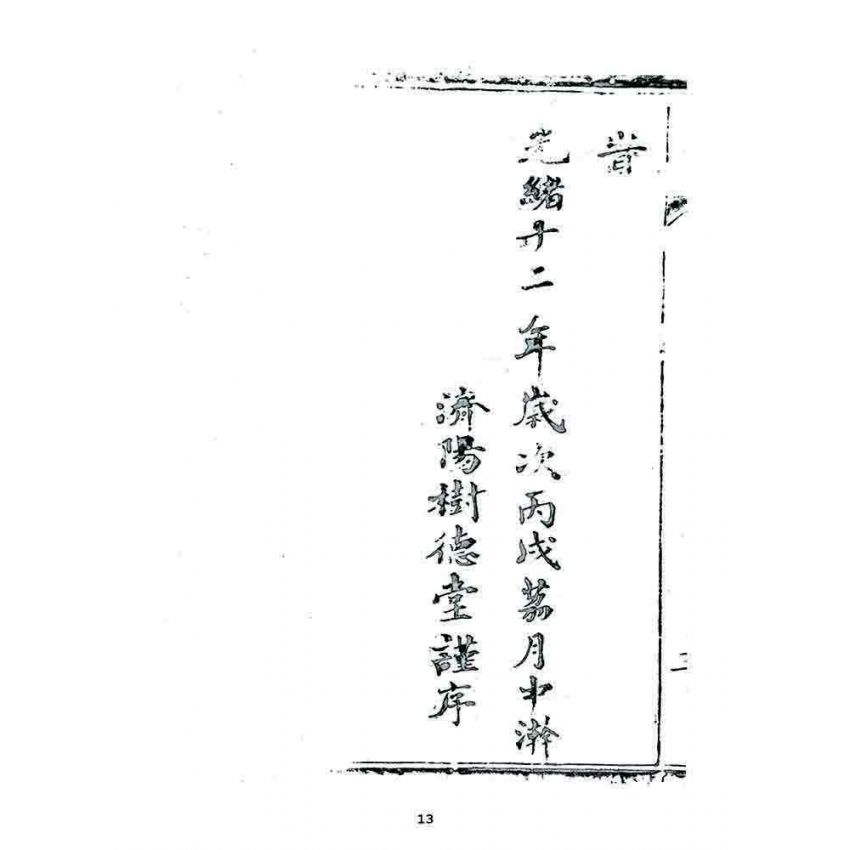 旹
光緒十二年歲次丙戌荔月中澣
濟陽樹德堂謹序
13